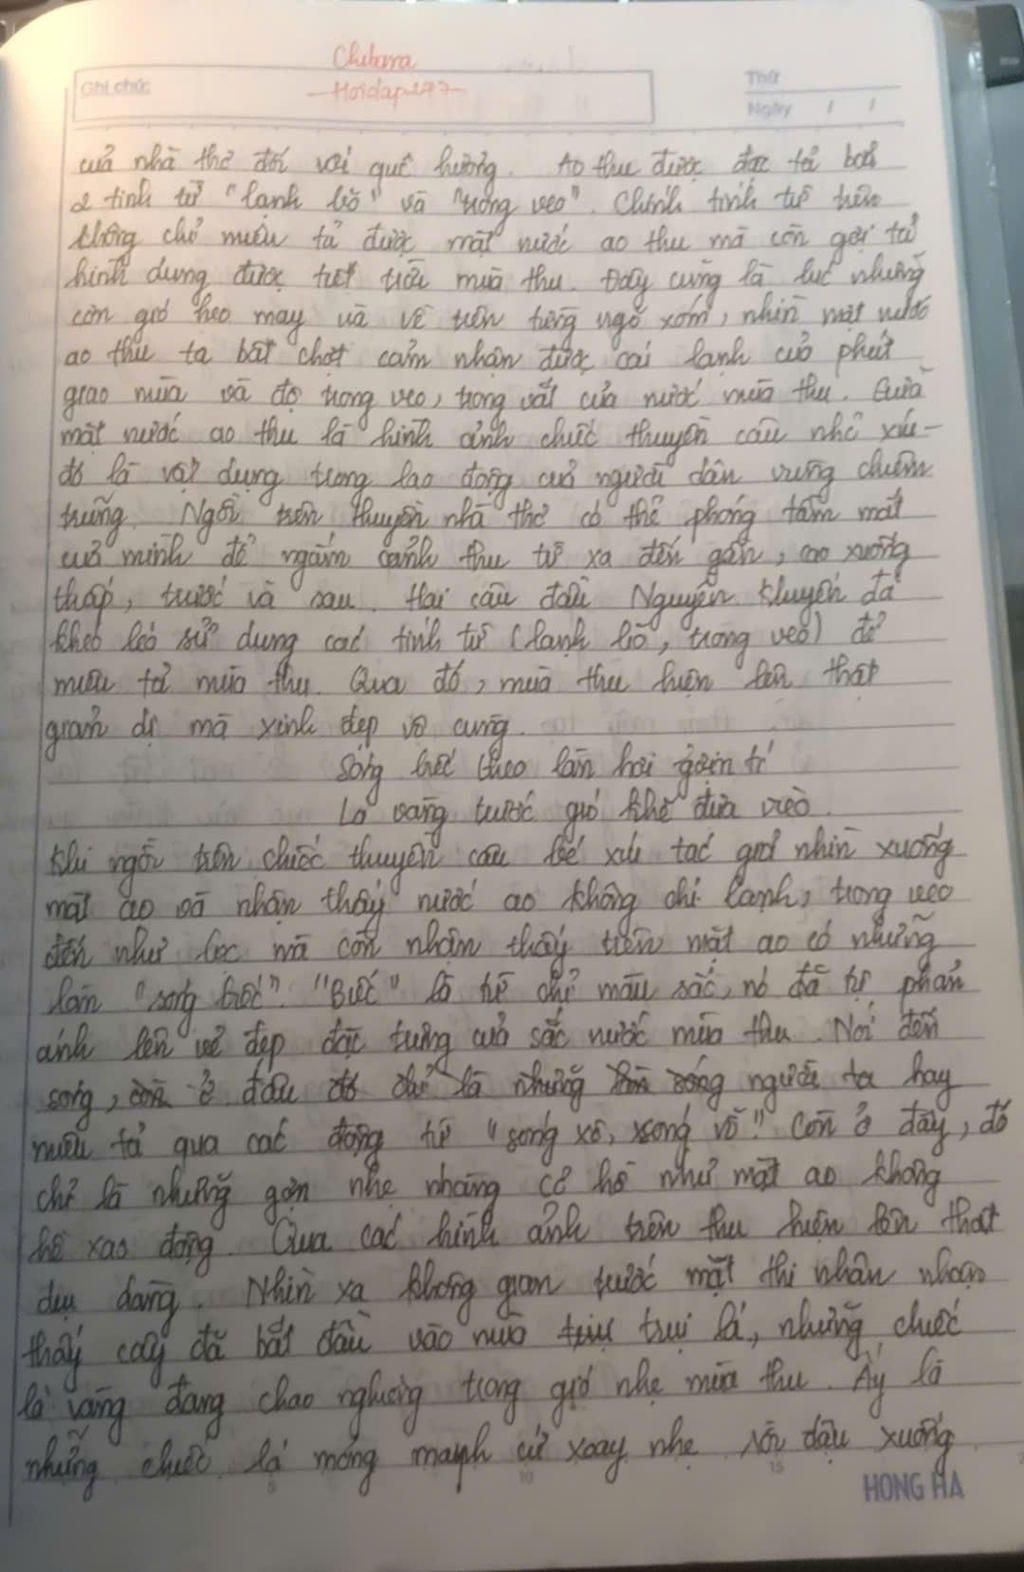 Chibara
Ghi chú:
-Hoidap247-
Thứ
Ngày / /
của nhà thơ đối với quê hương. Ao thu được đặc tả bởi
2 tính từ "lạnh lẽo" và "trong veo". Chính tính từ trên
không chỉ miêu tả được mặt nước ao thu mà còn gợi tả
hình dung được tiết trời mùa thu. Đây cũng là lúc những
cơn gió heo may ùa về trên từng ngõ xóm, nhìn mặt nước
ao thu ta bất chợt cảm nhận được cái lạnh của phút
giao mùa và độ trong veo, trong vắt của nước mùa thu. Giữa
mặt nước ao thu là hình ảnh chiếc thuyền câu nhỏ xíu-
đó là vật dụng trong lao động của người dân vùng chiêm
trũng. Ngồi trên thuyền nhà thơ có thể phóng tầm mắt
của mình để ngắm cảnh thu từ xa đến gần, cao xuống
thấp, trước và sau. Hai câu đầu Nguyễn Khuyến đã
khéo léo sử dụng các tính từ (lạnh lẽo, trong veo) để
miêu tả mùa thu. Qua đó, mùa thu hiện lên thật
giản dị mà xinh đẹp vô cùng.
Sóng biếc theo làn hơi gợn tí
Lá vàng trước gió khẽ đưa vèo.
Khi ngồi trên chiếc thuyền câu bé xíu tác giả nhìn xuống
mặt ao và nhận thấy nước ao không chỉ lạnh, trong veo
đến như lọc mà còn nhận thấy trên mặt ao có những
làn "sóng biếc". "Biếc" là từ chỉ màu sắc, nó đã tự phản
ánh lên vẻ đẹp đặc trưng của sắc nước mùa thu. Nói đến
sóng, còn ở đâu đó chỉ là những làn sóng người ta hay
miêu tả qua các động từ "sóng xô, sóng vỗ". Còn ở đây, đó
chỉ là những gợn nhẹ nhàng cơ hồ như mặt ao không
hề xao động. Qua các hình ảnh trên thu hiện lên thật
dịu dàng. Nhìn xa không gian trước mặt thi nhân nhận
thấy cây đã bắt đầu vào mùa trụi lá, những chiếc
lá vàng đang chao nghiêng trong gió nhẹ mùa thu. Ấy là
những chiếc lá mỏng manh cứ xoay nhẹ rồi đậu xuống
5 10 15
HONG HA